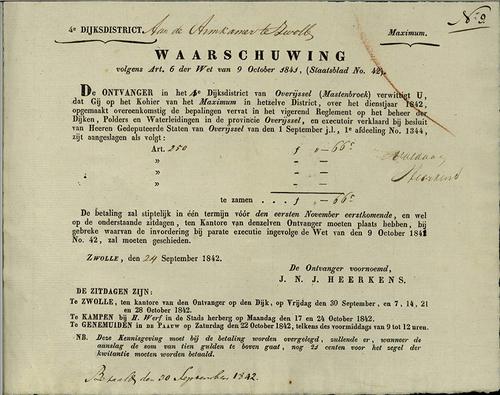 No. 9
4e DIJKSDISTRICT. Aan de Armkamer te Zwolle Maximum.
WAARSCHUWING
volgens Art. 6 der Wet van 9 October 1841, (Staatsblad No. 42).
DE ONTVANGER in het 4e Dijksdistrict van Overijssel (Mastenbroek) verwittigt U,
dat Gij op het Kohier van het Maximum in hetzelve District, over het dienstjaar 1842,
opgemaakt overeenkomstig de bepalingen vervat in het vigerend Reglement op het beheer der
Dijken, Polders en Waterleidingen in de provincie Overijssel, en executoir verklaard bij besluit
van Heeren Gedeputeerde Staten van Overijssel van den 1 September j.l., 1e afdeeling No. 1344,
zijt aangeslagen als volgt:
Art. 250 f 0 — 66c
» » —
» » —
» » —
te zamen . . . f 0 — 66c
De betaling zal stiptelijk in één termijn vóór den eersten November eerstkomende, en wel
op de onderstaande zitdagen, ten Kantore van denzelven Ontvanger moeten plaats hebben, bij
gebreke waarvan de invordering bij parate executie ingevolge de Wet van den 9 October 1841
No. 42, zal moeten geschieden.
ZWOLLE, den 24 September 1842.
De Ontvanger voornoemd,
J. N. J. HEERKENS.
DE ZITDAGEN ZIJN:
Te ZWOLLE, ten kantore van den Ontvanger op den Dijk, op Vrijdag den 30 September, en 7, 14, 21
en 28 October 1842.
Te KAMPEN bij H. Werf in de Stads herberg op Maandag den 17 en 24 October 1842.
Te GENEMUIDEN in DE PAAUW op Zaturdag den 22 October 1842, telkens des voormiddags van 9 tot 12 uren.
NB. Deze Kennisgeving moet bij de betaling worden overgelegd, zullende er, wanneer de
aanslag de som van tien gulden te boven gaat, nog 25 centen voor het zegel der
kwitantie moeten worden betaald.
Betaald den 30 September 1842.
Heerkens